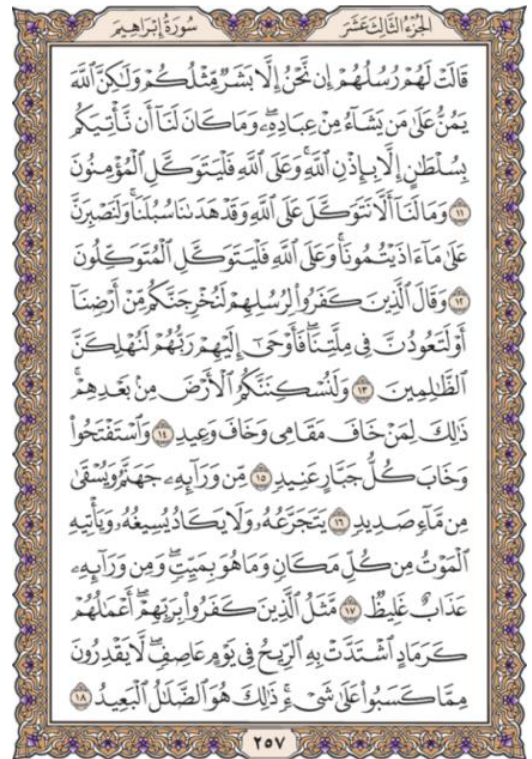 الجُزْءُ الثَّالِثَ عَشَرَ سُورَةُ إِبْرَاهِيمَ
قَالَتْ لَهُمْ رُسُلُهُمْ إِن نَّحْنُ إِلَّا بَشَرٌ مِّثْلُكُمْ وَلَٰكِنَّ ٱللَّهَ
يَمُنُّ عَلَىٰ مَن يَشَآءُ مِنْ عِبَادِهِۦۖ وَمَا كَانَ لَنَآ أَن نَّأْتِيَكُم
بِسُلْطَٰنٍ إِلَّا بِإِذْنِ ٱللَّهِۚ وَعَلَى ٱللَّهِ فَلْيَتَوَكَّلِ ٱلْمُؤْمِنُونَ
١١ وَمَا لَنَآ أَلَّا نَتَوَكَّلَ عَلَى ٱللَّهِ وَقَدْ هَدَىٰنَا سُبُلَنَاۚ وَلَنَصْبِرَنَّ
عَلَىٰ مَآ ءَاذَيْتُمُونَاۚ وَعَلَى ٱللَّهِ فَلْيَتَوَكَّلِ ٱلْمُتَوَكِّلُونَ
١٢ وَقَالَ ٱلَّذِينَ كَفَرُوا۟ لِرُسُلِهِمْ لَنُخْرِجَنَّكُم مِّنْ أَرْضِنَآ
أَوْ لَتَعُودُنَّ فِى مِلَّتِنَاۖ فَأَوْحَىٰٓ إِلَيْهِمْ رَبُّهُمْ لَنُهْلِكَنَّ
ٱلظَّٰلِمِينَ ١٣ وَلَنُسْكِنَنَّكُمُ ٱلْأَرْضَ مِنۢ بَعْدِهِمْۚ
ذَٰلِكَ لِمَنْ خَافَ مَقَامِى وَخَافَ وَعِيدِ ١٤ وَٱسْتَفْتَحُوا۟
وَخَابَ كُلُّ جَبَّارٍ عَنِيدٍ ١٥ مِّن وَرَآئِهِۦ جَهَنَّمُ وَيُسْقَىٰ
مِن مَّآءٍ صَدِيدٍ ١٦ يَتَجَرَّعُهُۥ وَلَا يَكَادُ يُسِيغُهُۥ وَيَأْتِيهِ
ٱلْمَوْتُ مِن كُلِّ مَكَانٍ وَمَا هُوَ بِمَيِّتٍۖ وَمِن وَرَآئِهِۦ
عَذَابٌ غَلِيظٌ ١٧ مَّثَلُ ٱلَّذِينَ كَفَرُوا۟ بِرَبِّهِمْۖ أَعْمَٰلُهُمْ
كَرَمَادٍ ٱشْتَدَّتْ بِهِ ٱلرِّيحُ فِى يَوْمٍ عَاصِفٍۖ لَّا يَقْدِرُونَ
مِمَّا كَسَبُوا۟ عَلَىٰ شَىْءٍۚ ذَٰلِكَ هُوَ ٱلضَّلَٰلُ ٱلْبَعِيدُ ١٨
٢٥٧